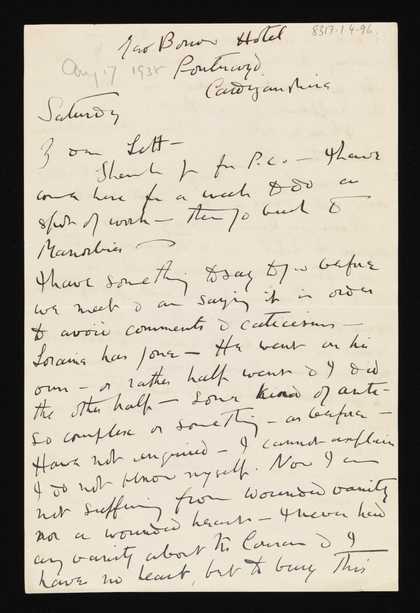 8317.1.4.96
Hotel
Aug 17 1938
Pontrwyd
Cardiganshire
Saturday
Lett –
Thank for P.C. – I have
come here for a week to do a
spot of work – then go back to
Manorbier
I have something to say to you before
we meet & am saying it in order
to avoid comments & –
has gone – He went on his
own – or rather half went & I did
the other half – Some kind of anti-
so complex or something – as before –
Have not enquired – I cannot explain
I do not know myself. Now I am
not suffering from wounded vanity
nor a wounded heart – I never had
any vanity about & I
have no heart, but to bury this